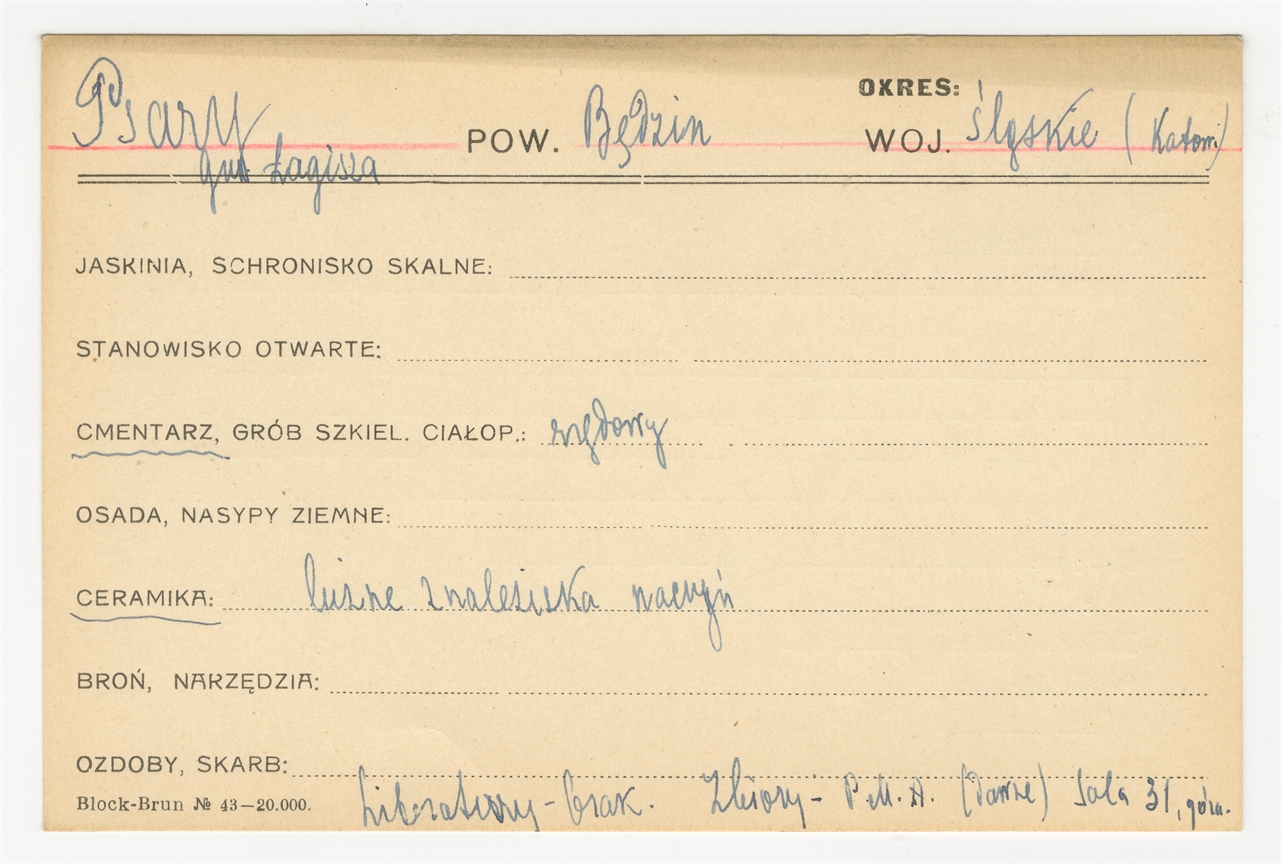 OKRES:
Psary POW. Będzin WOJ. Śląskie (Katow.)
gm. Łagisza
JASKINIA, SCHRONISKO SKALNE:
STANOWISKO OTWARTE:
CMENTARZ, GRÓB SZKIEL. CIAŁOP.: rzędowy
OSADA, NASYPY ZIEMNE:
CERAMIKA: luźne znaleziska naczyń
BROŃ, NARZĘDZIA:
OZDOBY, SKARB:
Block-Brun № 43—20.000. Literatury - brak. Zbiory - P.M.A. (dawne) Sala 31, góra.